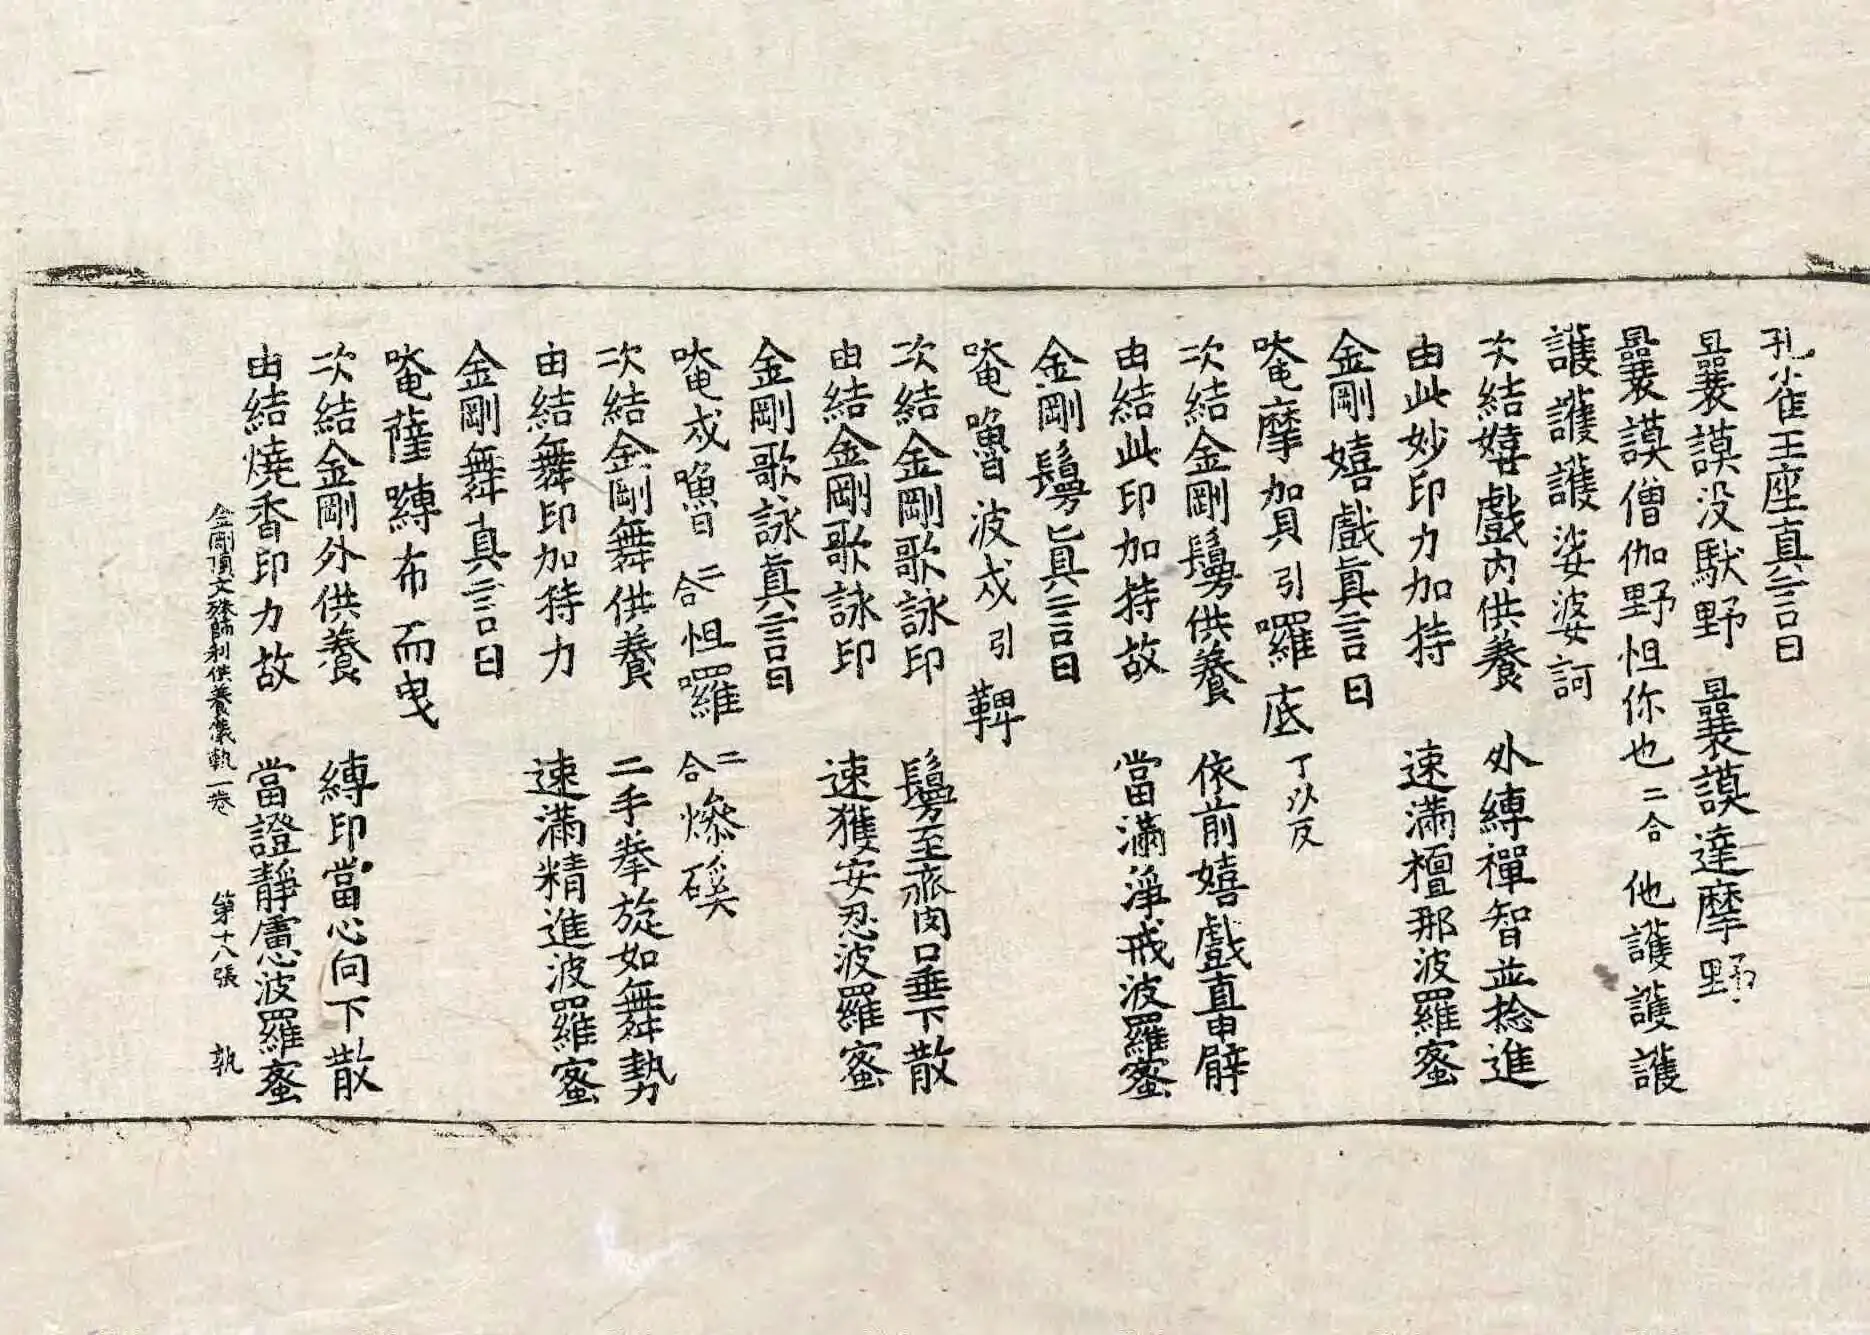 孔雀王座真言曰
曩謨没馱野 曩謨達摩野
曩謨僧伽野怛你也二合 他護護護
護護護娑婆訶
次結嬉戲内供養 外縛禪智並捻進
由此妙印力加持 速滿檀那波羅蜜
金剛嬉戲真言曰
唵摩賀引囉底丁以反
次結金剛鬘供養 依前嬉戲直申臂
由結此印加持故 當滿淨戒波羅蜜
金剛鬘真言曰
唵嚕波戍引鞞
次結金剛歌詠印 鬘至齎肉口垂下散
由結金剛歌詠印 速獲安忍波羅蜜
金剛歌詠真言曰
唵戍嚕二合怛囉二合燥磎
次結金剛舞供養 二手拳旋如舞勢
由結舞印加持力 速滿精進波羅蜜
金剛舞真言曰
唵薩嚩布而曳
次結金剛外供養 縛印當心向下散
由結燒香印力故 當證靜慮波羅蜜
金剛頂文殊師利供養儀軌一卷 第十八張 執